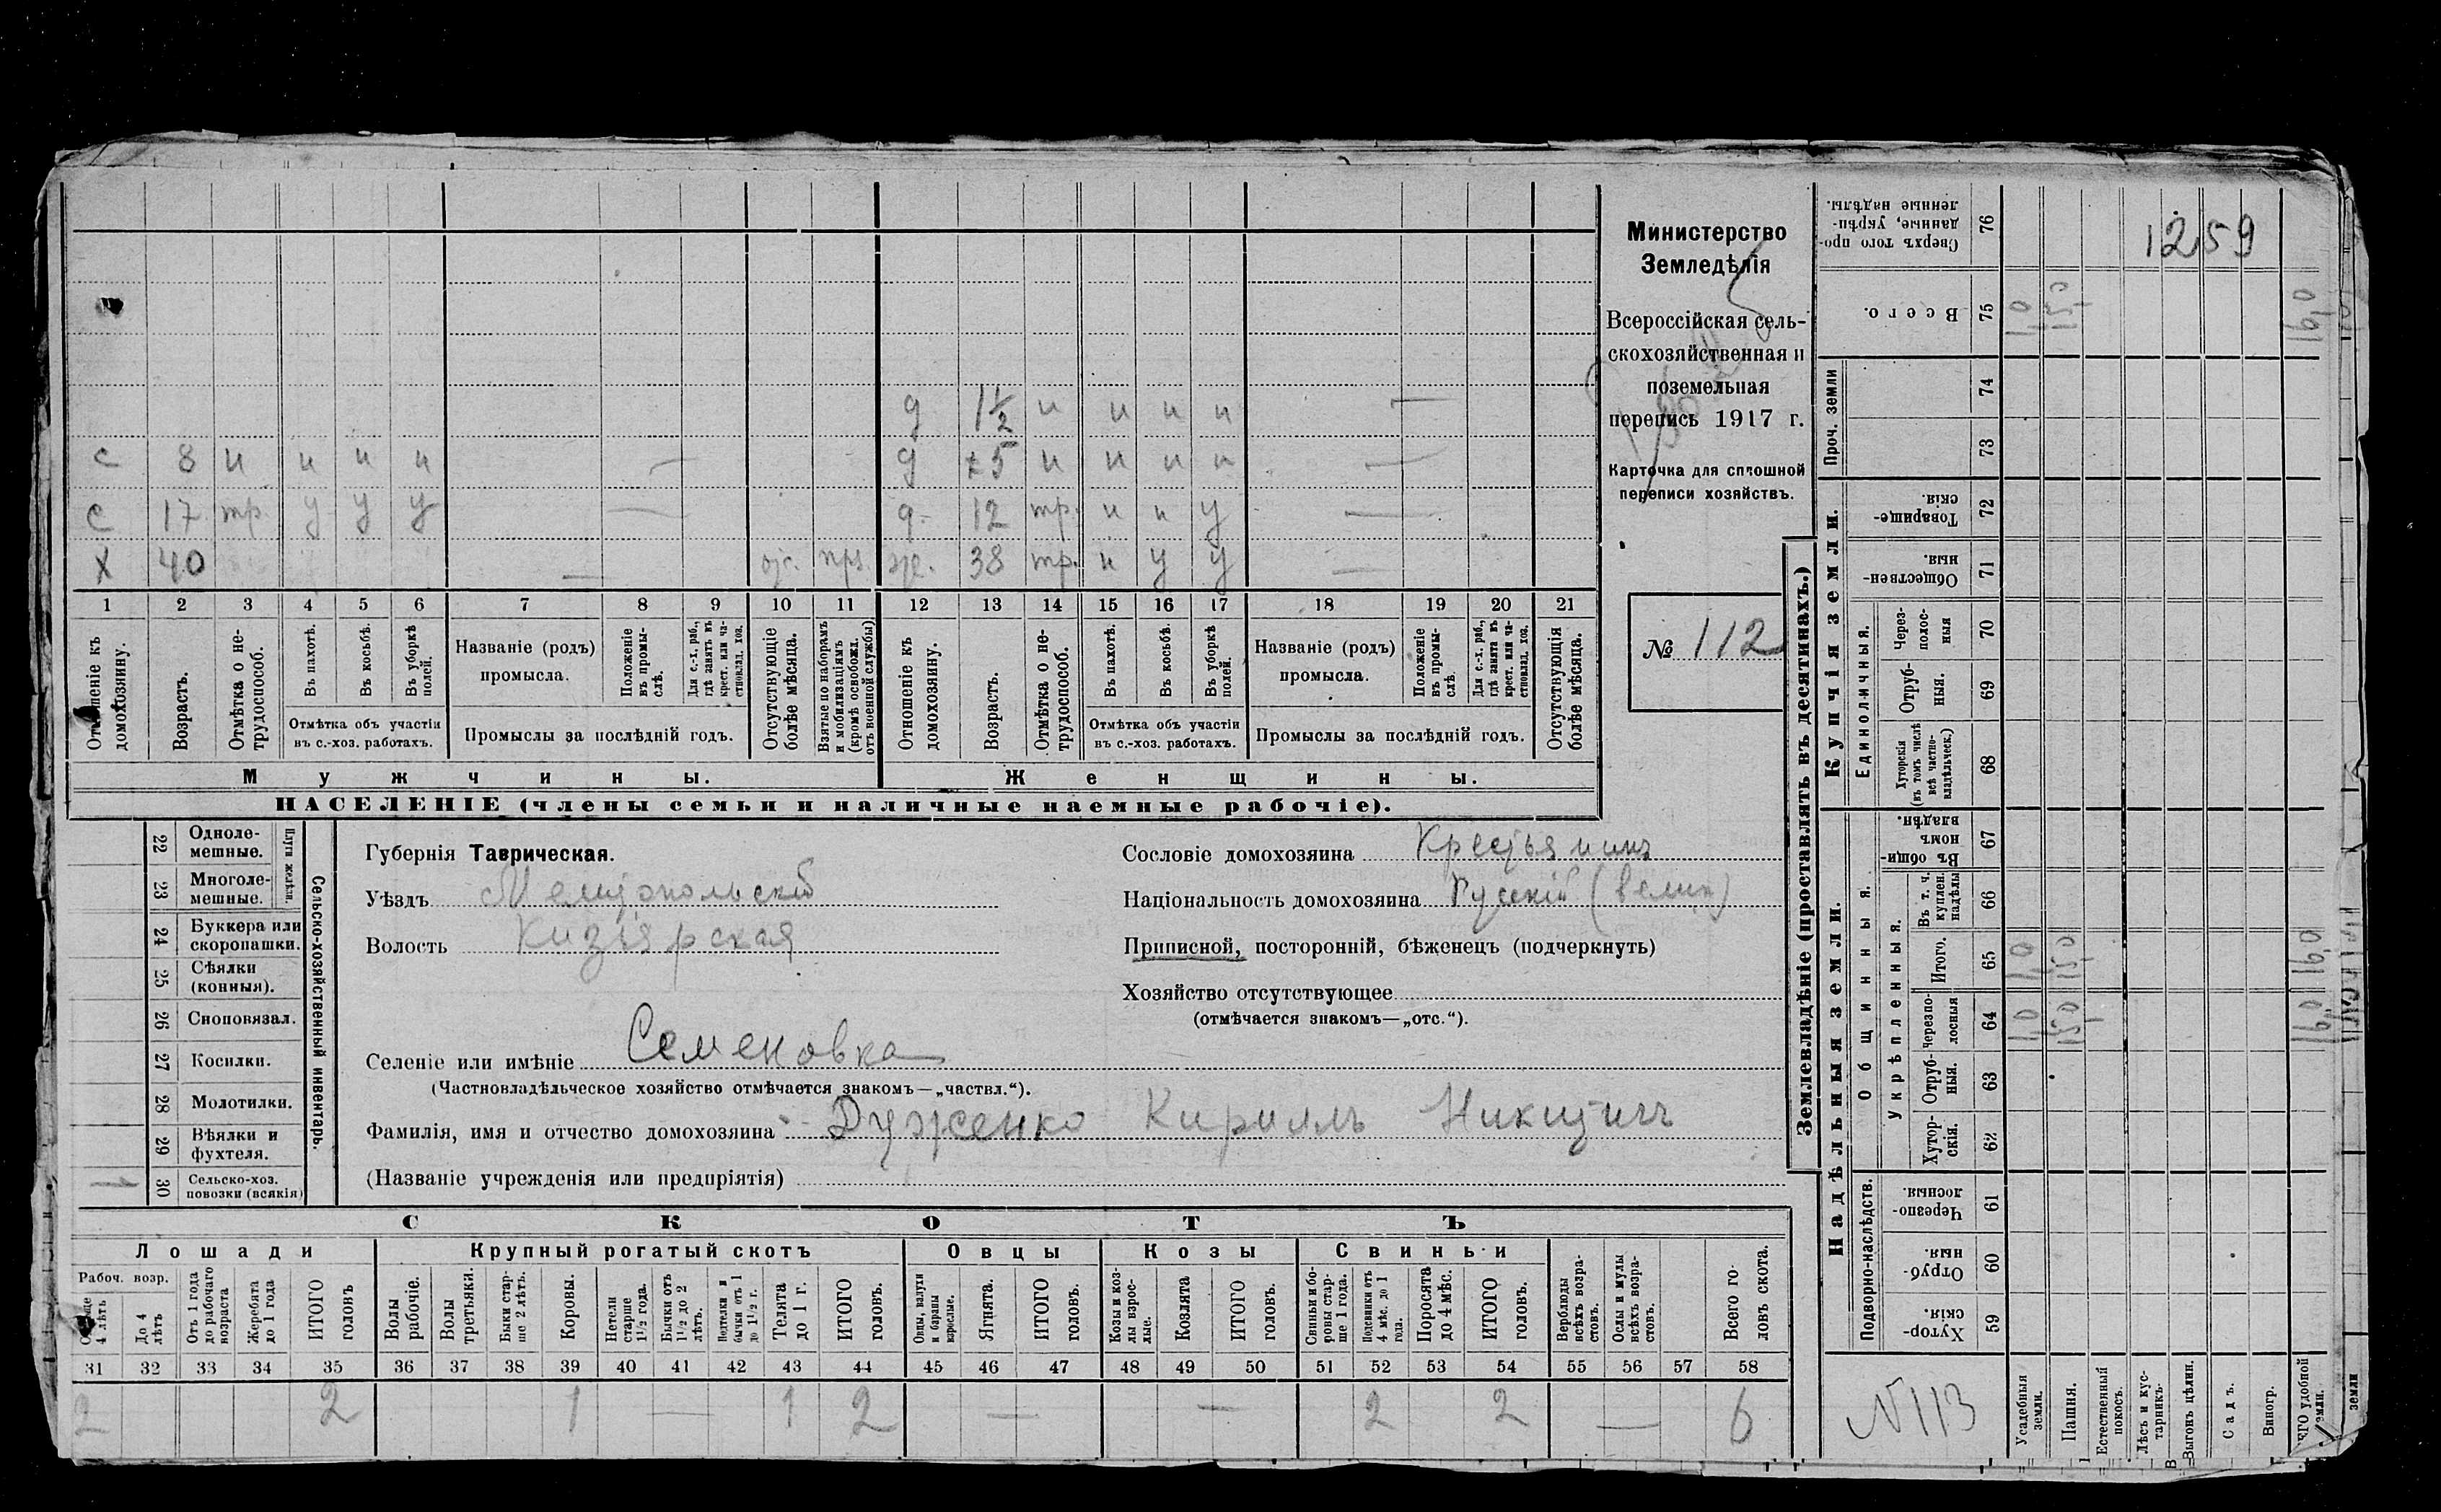 д 1½ н н н н —
с 8 н н н н — д 5 н н н н —
с 17 тр. у у у — д. 12 тр. н н у —
х 40 — от. прз. ж. 38 тр. н у у —
1 2 3 4 5 6 7 8 9 10 11 12 13 14 15 16 17 18 19 20 21
Отношеніе къ домохозяину.
Возрастъ.
Отмѣтка о не-трудоспособ.
Въ пахотѣ.
Въ косьбѣ.
Въ уборкѣ полей.
Отмѣтка объ участіи
въ с.-хоз. работахъ.
Названіе (родъ)
промысла.
Положеніе въ промы-слѣ.
Для с.-х. раб., гдѣ занятъ въ крест. или ча-стновлад. хоз.
Промыслы за послѣдній годъ.
Отсутствующіе болѣе мѣсяца.
Взятые по наборамъ и мобилизаціямъ (кромѣ освобожд. отъ военной службы)
Отношеніе къ домохозяину.
Возрастъ.
Отмѣтка о не-трудоспособ.
Въ пахотѣ.
Въ косьбѣ.
Въ уборкѣ полей.
Отмѣтка объ участіи
въ с.-хоз. работахъ.
Названіе (родъ)
промысла.
Положеніе въ промы-слѣ.
Для с.-х. раб., гдѣ занята въ крест. или ча-стновлад. хоз.
Промыслы за послѣдній годъ.
Отсутствующія болѣе мѣсяца.
Мужчины. Женщины.
НАСЕЛЕНІЕ (члены семьи и наличные наемные рабочіе).
Министерство
Земледѣлія
Всероссійская сель-
скохозяйственная и
поземельная
перепись 1917 г.
Карточка для сплошной
переписи хозяйствъ.
№ 112
Сельско-хозяйственный инвентарь.
Плуги желѣзн.
22 Одноле-
мешные.
23 Многоле-
мешные.
24 Буккера или
скоропашки.
25 Сѣялки
(конныя).
26 Сноповязал.
27 Косилки.
28 Молотилки.
29 Вѣялки и
фухтеля.
1 30 Сельско-хоз.
повозки (всякія)
Губернія Таврическая.
Уѣздъ Мелитопольскій
Волость Кизіярская
Селеніе или имѣніе Семеновка
(Частновладѣльческое хозяйство отмѣчается знакомъ—„частвл.“).
Фамилія, имя и отчество домохозяина Дудченко Кириллъ Никитичъ
(Названіе учрежденія или предпріятія)
Сословіе домохозяина Крестьянинъ
Національность домохозяина Русскій (велик)
Приписной, посторонній, бѣженецъ (подчеркнуть)
Хозяйство отсутствующее
(отмѣчается знакомъ—„отс.“).
СКОТЪ
Лошади Крупный рогатый скотъ Овцы Козы Свиньи
Рабоч. возр.
4 лѣтъ
До 4 лѣтъ
Отъ 1 года до рабочаго возраста
Жеребята до 1 года
ИТОГО головъ
Волы рабочіе.
Волы третьяки.
Быки стар-ше 2 лѣтъ.
Коровы.
Нетели старше 1½ года.
Бычки отъ 1½ до 2 лѣтъ.
Нетелки и бычки отъ 1 до 1½ г.
Телята до 1 г.
ИТОГО головъ.
Овцы, валухи и бараны взрослые.
Ягнята.
ИТОГО головъ.
Козы и коз-лы взрос-лые.
Козлята
ИТОГО головъ.
Свиньи и бо-ровы стар-ше 1 года.
Подсвинки отъ 4 мѣс. до 1 года.
Поросята до 4 мѣс.
ИТОГО головъ.
Верблюды всѣхъ возра-стовъ.
Ослы и мулы всѣхъ возра-стовъ.
Всего го-ловъ скота.
31 32 33 34 35 36 37 38 39 40 41 42 43 44 45 46 47 48 49 50 51 52 53 54 55 56 57 58
2 2 1 — 1 2 — — 2 2 — 6
Землевладѣніе (проставлять въ десятинахъ.)
Купчія земли.
Надѣльныя земли.
Сверхъ того про-данные, укрѣп-ленные надѣлы. 76
1259
Всего. 75 1,0 15,0 16,0
Проч. земли 74
73
Товарище-скія. 72
Обществен-ныя. 71
Единоличныя.
Через-полос-ныя 70
Отруб-ныя. 69
Хуторскія (въ томъ числѣ всѣ частно-владѣльческ.) 68
Общинныя.
Въ общин-номъ владѣн. 67
Укрѣпленныя.
Въ т. ч. куплен. надѣлы 66
Итого. 65 1,0 15,0 16,0
Черезпо-лосныя 64 1,0 15,0 16,0
Отруб-ныя. 63
Хутор-скія. 62
Подворно-наслѣдств.
Черезпо-лосныя 61
Отруб-ныя. 60
Хутор-скія. 59
N 113
Усадебныя земли.
Пашня.
Естественный покосъ.
Лѣсъ и кус-тарникъ.
Выгонъ цѣлин.
Садъ.
Виногр.
удобной земли.
земли